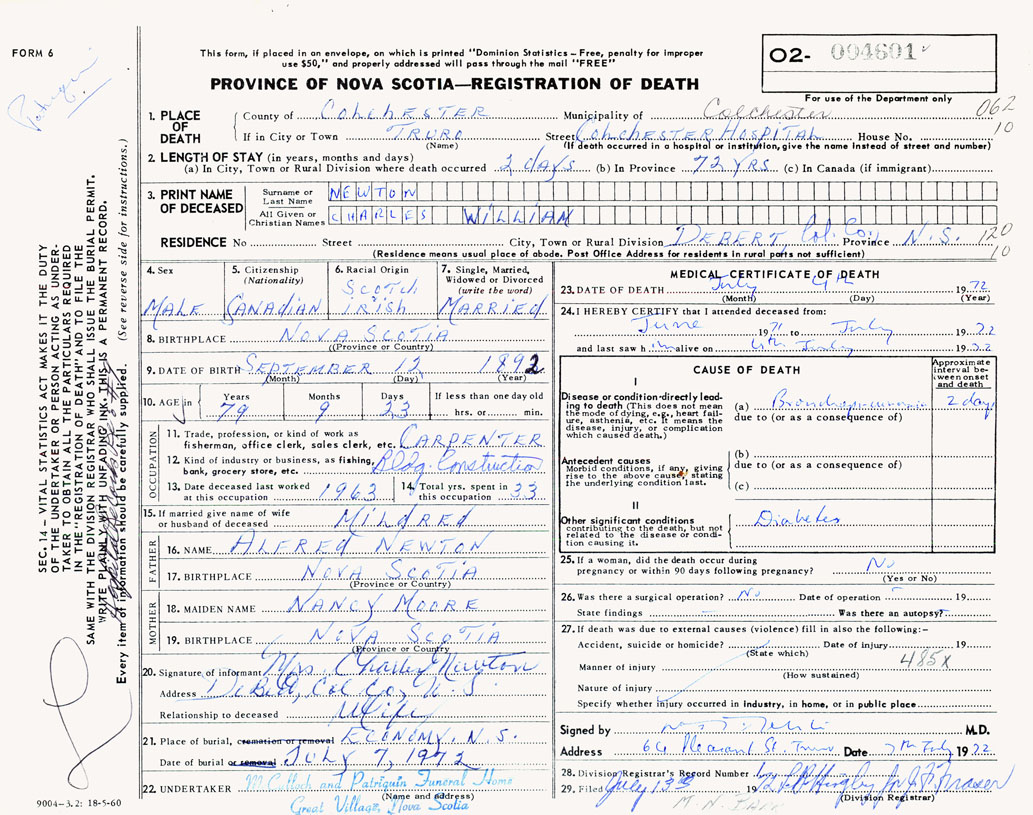 FORM 6
This form, if placed in an envelope, on which is printed "Dominion Statistics – Free, penalty for improper
use $50," and properly addressed will pass through the mail "FREE"
PROVINCE OF NOVA SCOTIA—REGISTRATION OF DEATH
O2- 094601
For use of the Department only
062
10
1. PLACE OF DEATH
County of COLCHESTER Municipality of Colchester
If in City or Town TRURO Street COLCHESTER HOSPITAL House No.
(Name) (If death occurred in a hospital or institution, give the name instead of street and number)
2. LENGTH OF STAY (in years, months and days)
(a) In City, Town or Rural Division where death occurred 2 days (b) In Province 72 YRS (c) In Canada (if immigrant)
3. PRINT NAME OF DECEASED
Surname or Last Name NEWTON
All Given or Christian Names CHARLES WILLIAM
RESIDENCE No Street City, Town or Rural Division DEBERT, Col. Co., Province N.S. 120
10
(Residence means usual place of abode. Post Office Address for residents in rural parts not sufficient)
4. Sex MALE
5. Citizenship (Nationality) CANADIAN
6. Racial Origin SCOTCH IRISH
7. Single, Married, Widowed or Divorced (write the word) MARRIED
8. BIRTHPLACE NOVA SCOTIA
(Province or Country)
9. DATE OF BIRTH SEPTEMBER 12, 1892
(Month) (Day) (Year)
10. AGE in Years 79 Months 9 Days 23 If less than one day old hrs. or min.
OCCUPATION
11. Trade, profession, or kind of work as fisherman, office clerk, sales clerk, etc. CARPENTER
12. Kind of industry or business, as fishing, bank, grocery store, etc. Bldg. Construction
13. Date deceased last worked at this occupation 1963
14. Total yrs. spent in this occupation 33
15. If married give name of wife or husband of deceased MILDRED
FATHER
16. NAME ALFRED NEWTON
17. BIRTHPLACE NOVA SCOTIA
(Province or Country)
MOTHER
18. MAIDEN NAME NANCY MOORE
19. BIRTHPLACE NOVA SCOTIA
(Province or Country)
20. Signature of informant Mrs. Charles Newton
Address DeBert, Col Co, N.S.
Relationship to deceased Wife
21. Place of burial, cremation or removal ECONOMY, N.S.
Date of burial or removal JULY 7, 1972
22. UNDERTAKER McCulloch and Patriquin Funeral Home
(Name and address)
Great Village, Nova Scotia
9004–3.2: 18-5-60
MEDICAL CERTIFICATE OF DEATH
23. DATE OF DEATH July 4th 1972
(Month) (Day) (Year)
24. I HEREBY CERTIFY that I attended deceased from:
June 1971 to July 1972
and last saw him alive on 4th July 1972
CAUSE OF DEATH
Approximate interval between onset and death
I
Disease or condition directly leading to death (This does not mean the mode of dying, e.g., heart failure, asthenia, etc. It means the disease, injury, or complication which caused death.)
(a) Bronchopneumonia 2 days
due to (or as a consequence of)
Antecedent causes
Morbid conditions, if any, giving rise to the above cause, stating the underlying condition last.
(b)
due to (or as a consequence of)
(c)
II
Other significant conditions
contributing to the death, but not related to the disease or condition causing it.
Diabetes
25. If a woman, did the death occur during pregnancy or within 90 days following pregnancy? No
(Yes or No)
26. Was there a surgical operation? No Date of operation 19
State findings Was there an autopsy?
27. If death was due to external causes (violence) fill in also the following:–
Accident, suicide or homicide? Date of injury 19
(State which)
485X
Manner of injury
(How sustained)
Nature of injury
Specify whether injury occurred in industry, in home, or in public place
Signed by M.D.
Address 66 Pleasant St. Truro Date 7th July 1972
28. Division Registrar's Record Number
29. Filed July 13 Fraser
(Division Registrar)
SEC. 14 – VITAL STATISTICS ACT MAKES IT THE DUTY
OF THE UNDERTAKER OR PERSON ACTING AS UNDERTAKER
TO OBTAIN ALL THE PARTICULARS REQUIRED
IN THE "REGISTRATION OF DEATH" AND TO FILE THE
SAME WITH THE DIVISION REGISTRAR WHO SHALL ISSUE THE BURIAL PERMIT.
WRITE PLAINLY WITH UNFADING INK. THIS IS A PERMANENT RECORD.
Every item of information should be carefully supplied. (See reverse side for instructions.)